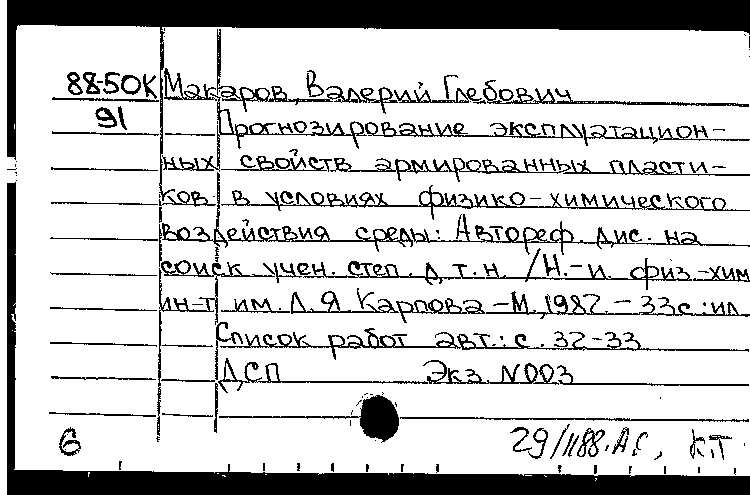 88-50К Макаров, Валерий Глебович
91 Прогнозирование эксплуатацион-
ных свойств армированных пласти-
ков в условиях физико-химического
воздействия среды: Автореф. дис. на
соиск. учен. степ. д.т.н. /Н.-и. физ-хим
ин-т им. Л.Я. Карпова -М., 1987. - 33с.: ил
Список работ авт.: с. 32-33
ДСП Экз. N003
6 29/1188. к.т